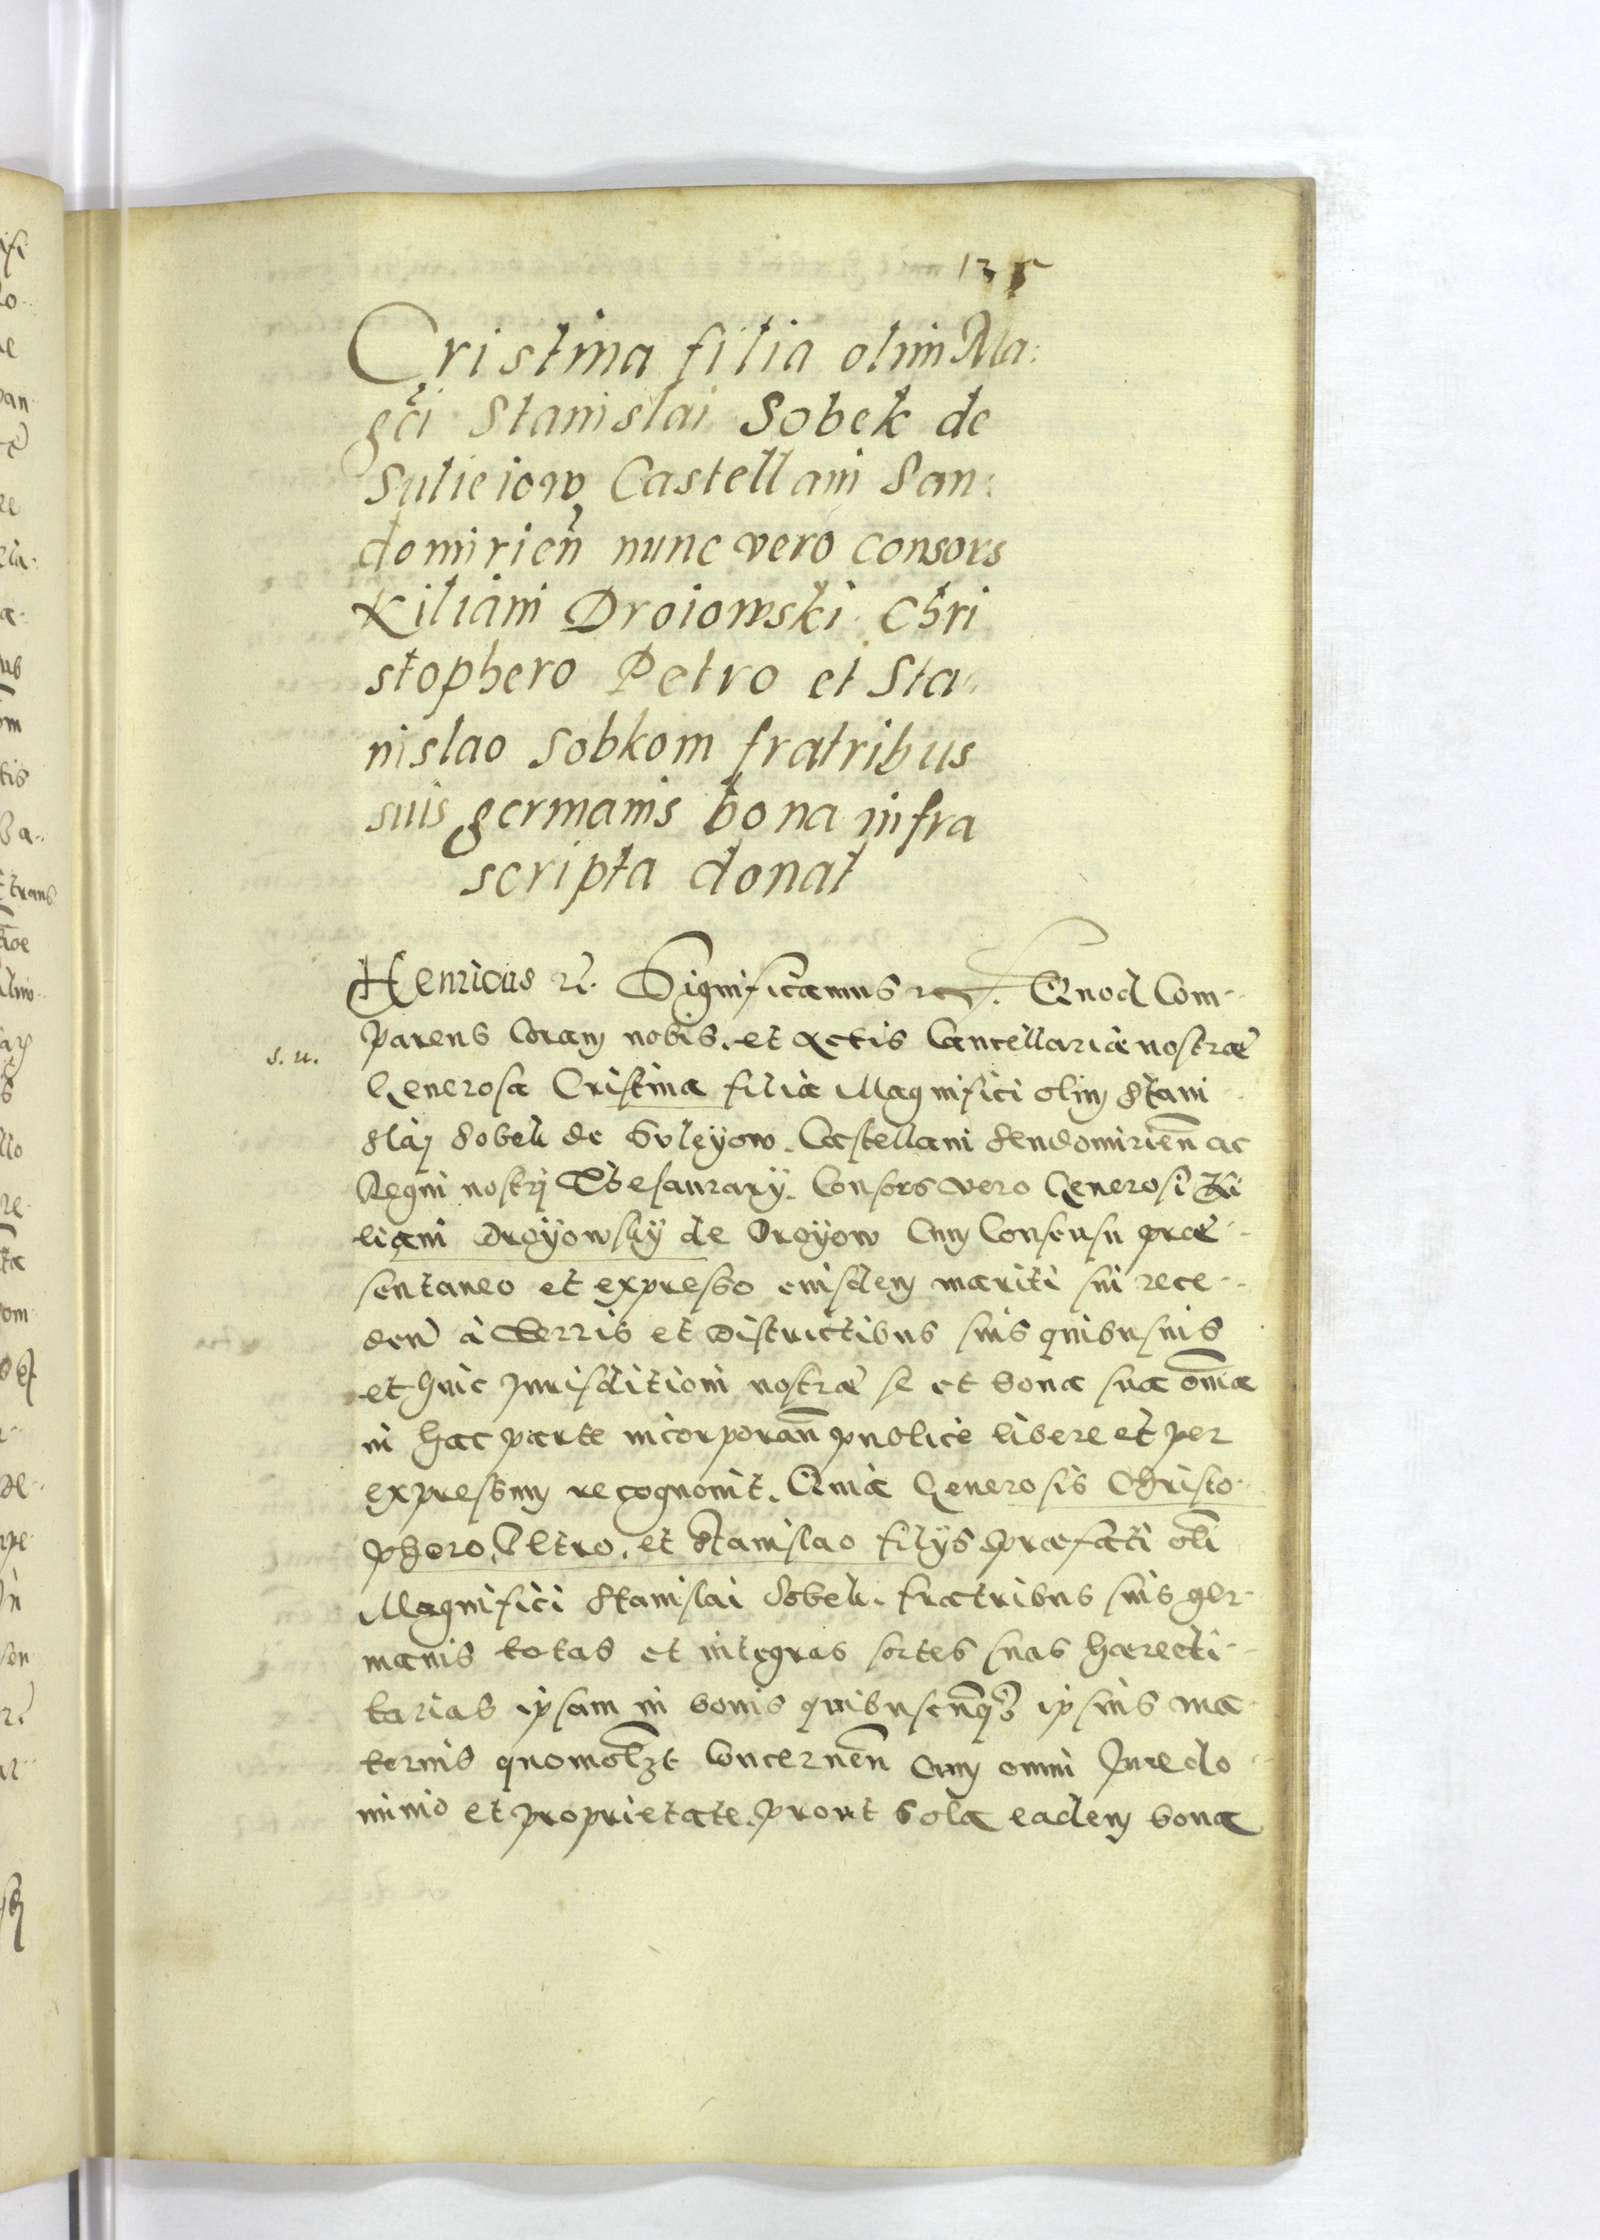 135
Cristina filia olim Ma:
gci Stanislai Sobek de
Sulieiow Castellani San:
domirien nunc vero consors
Kiliani Droiowski Chri
stophero Petro et Sta:
nislao Sobkom fratribus
suis germanis bona infra
scripta donat
Henricus rc. Significamus rc. Quod Com-
parens Coram nobis, et Actis Cancellariae nostrae
s. u.
Generosa Cristina filia Magnifici olim Stani
slaj Sobek de Suleyow. Castellani Sendomirien ac
Regni nostrj Thesaurary. Consors vero Generosi Ki
liani Droyowsky de Droyow Cum Consensu prae-
sentaneo et expresso eiusdem mariti sui rece-
den à Terris et Districtibus suis quibusuis
et huic Jurisditioni nostrae se et bona sua omia
in hac parte incorporan publice libere et per
expressum recognouit. Quia Generosis Christo-
phero, Petro, et Stanislao filys praefati oli
Magnifici Stanislai Sobek. fratribus suis ger-
manis totas et integras sortes suas haeredi-
tarias ipsam in bonis quibuscunq3 ipsius ma-
ternis quomolzt Concernen Cum omni Jure do-
minio et proprietate. prout sola eadem bona